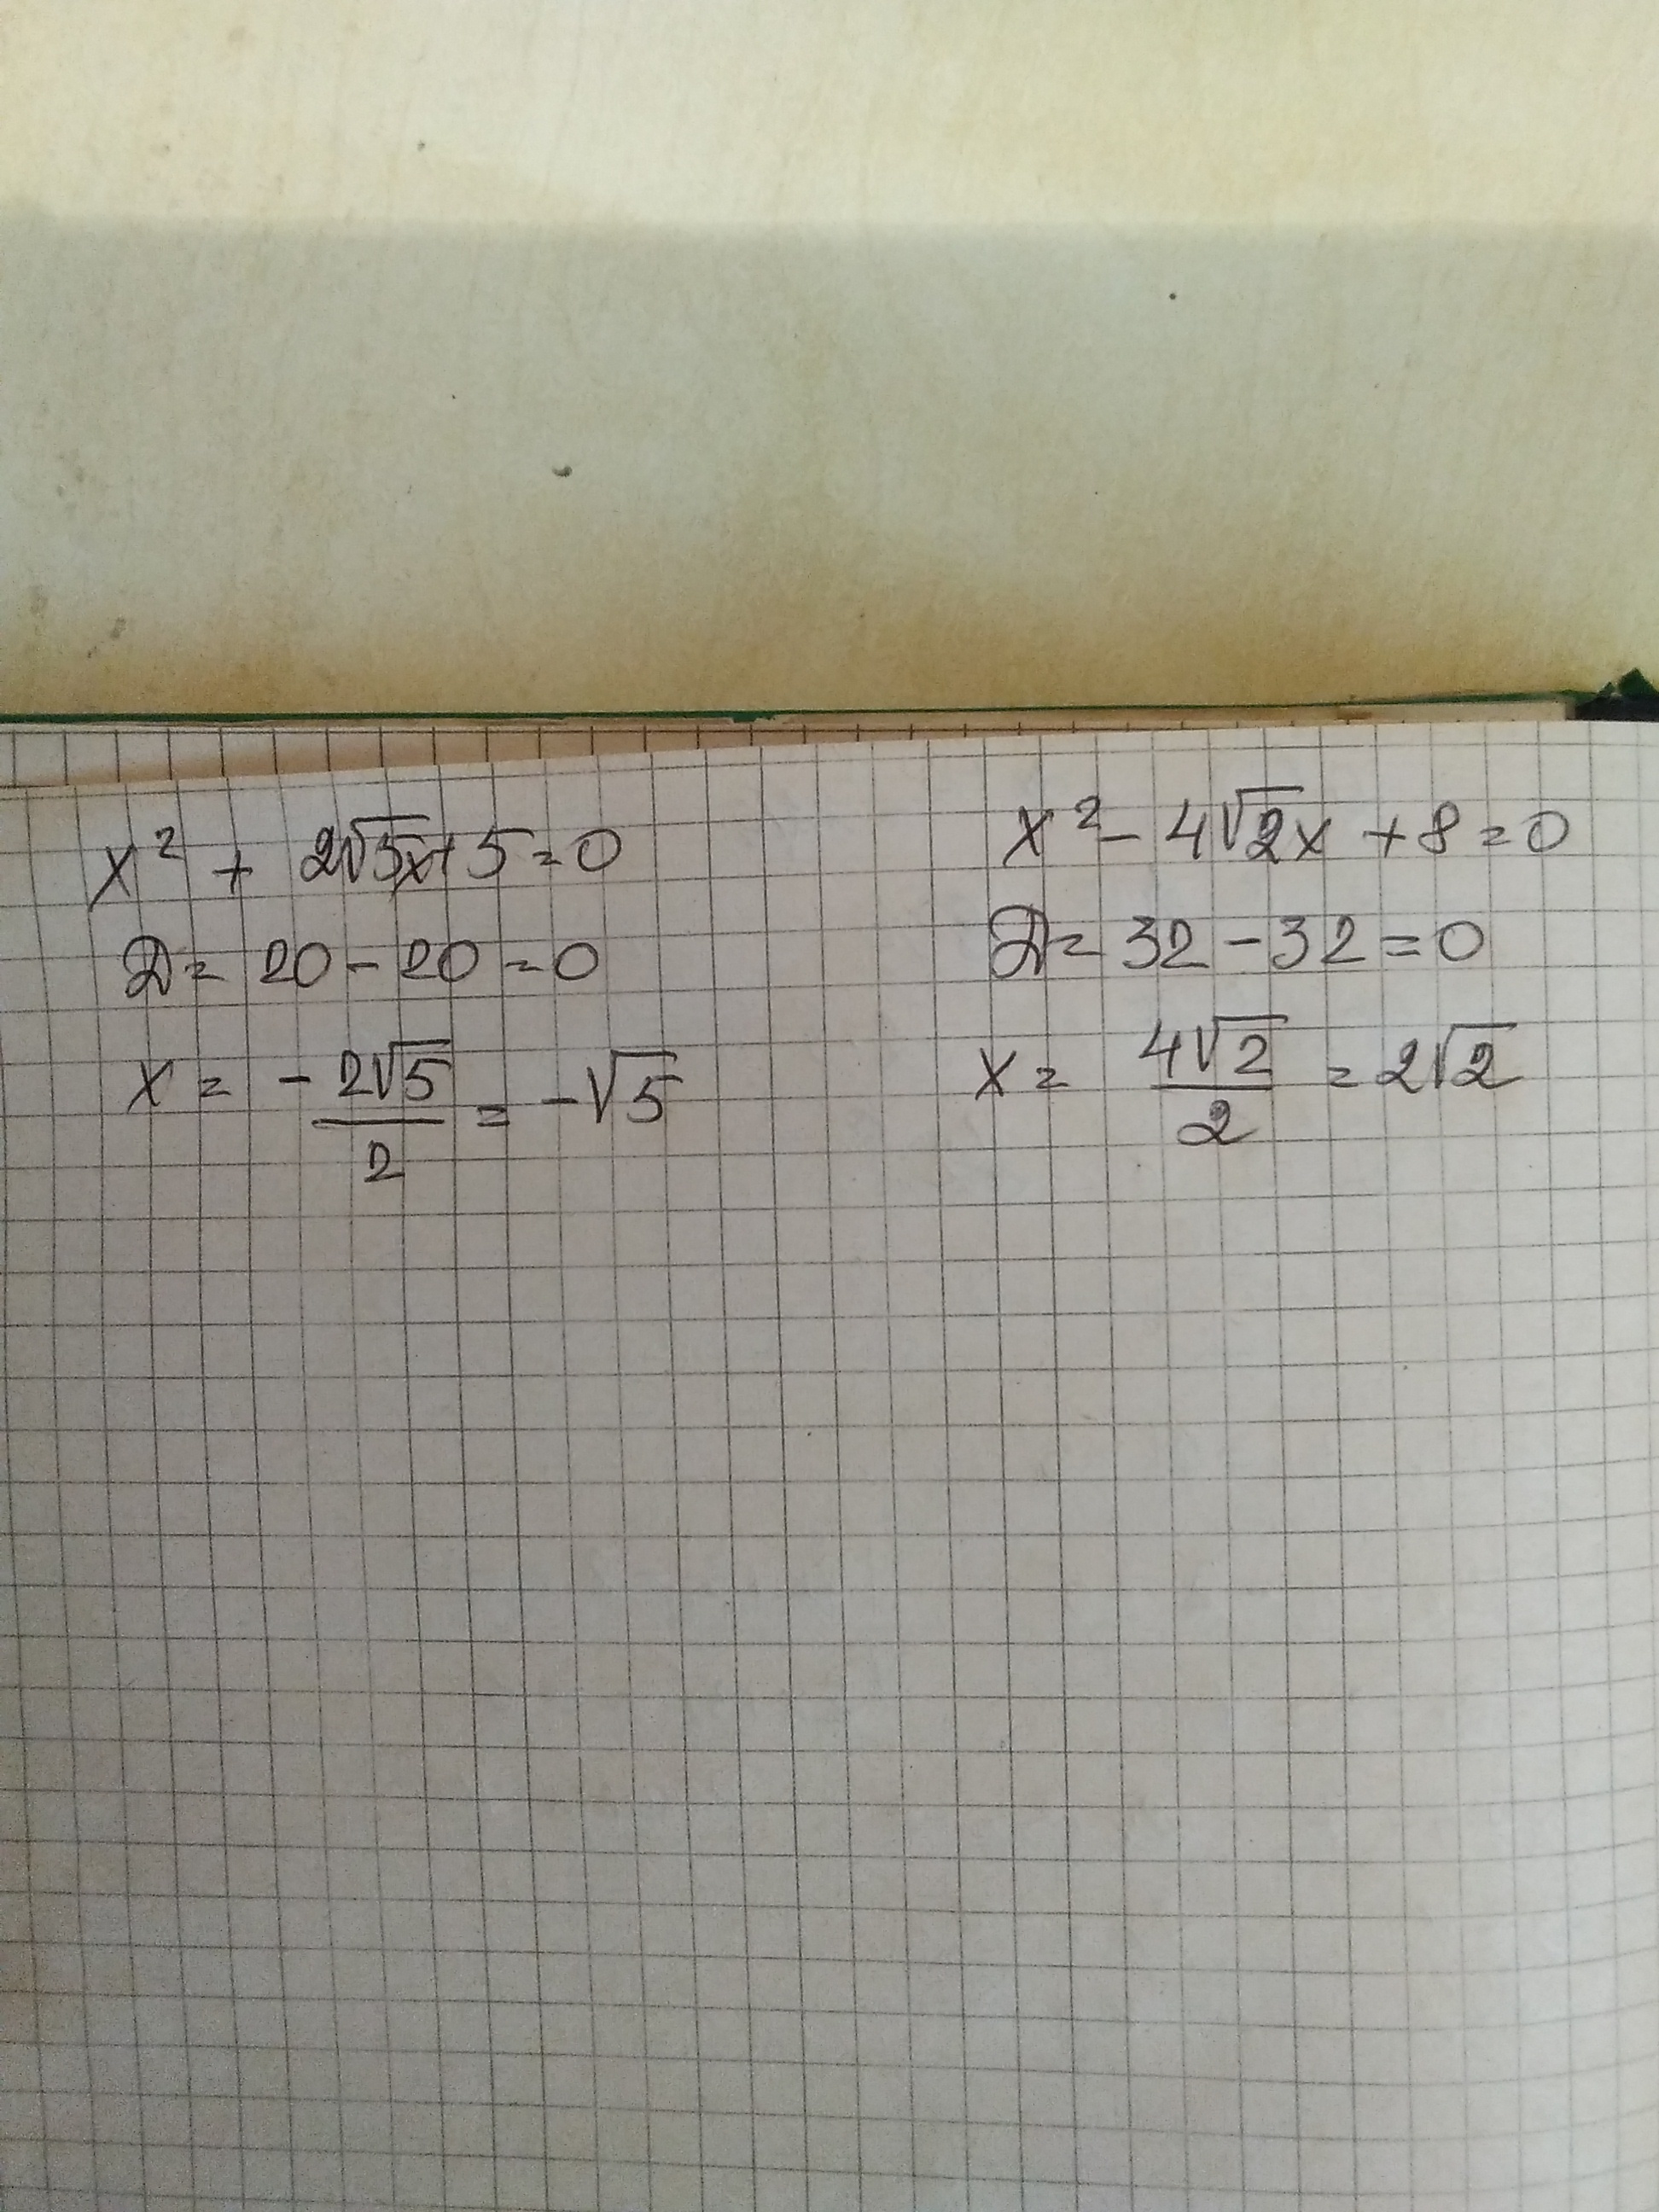 x² + 2√5x+5=0
D=20-20=0
x = -2√5/2 = -√5
x²-4√2x+8=0
D=32-32=0
x= 4√2/2 =2√2